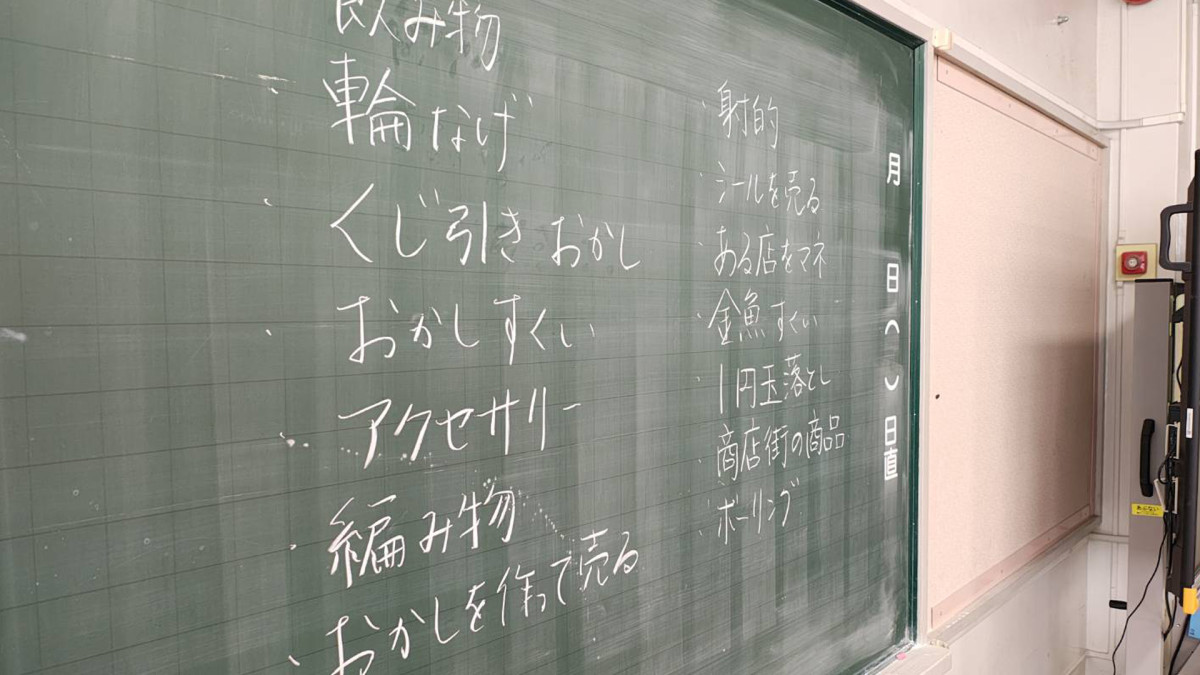 飲み物
・輪なげ
・くじ引き おかし
・おかしすくい
・アクセサリー
・編み物
・おかしを作って売る
・射的
・シールを売る
・ある店をマネ
・金魚すくい
・1円玉落とし
・商店街の商品
・ボーリング
月 日( )日直
あぶない